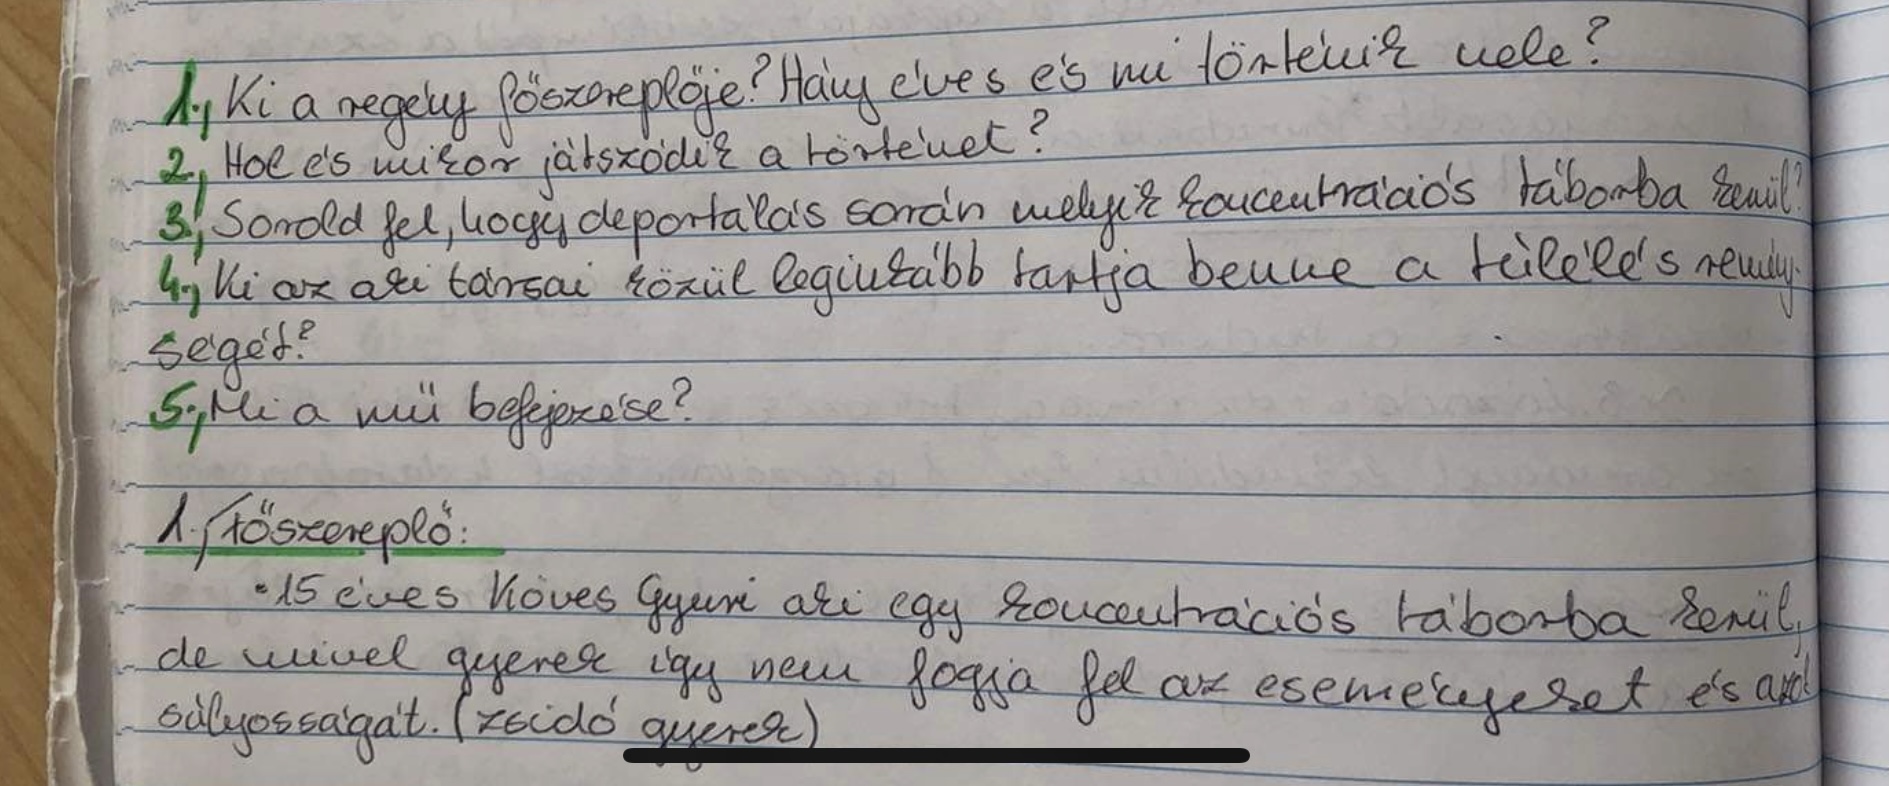 1., Ki a regény főszereplője? Hány éves és mi történik vele?
2., Hol és mikor játszódik a történet?
3., Sorold fel, hogy deportálás során melyik koncentrációs táborba kerül?
4., Ki az aki társai közül leginkább tartja benne a túlélés remény-
ségét?
5., Mi a mű befejezése?
1., Főszereplő:
• 15 éves Köves Gyuri aki egy koncentrációs táborba kerül,
de mivel gyerek így nem fogja fel az eseményeket és azok
súlyosságát. (zsidó gyerek)